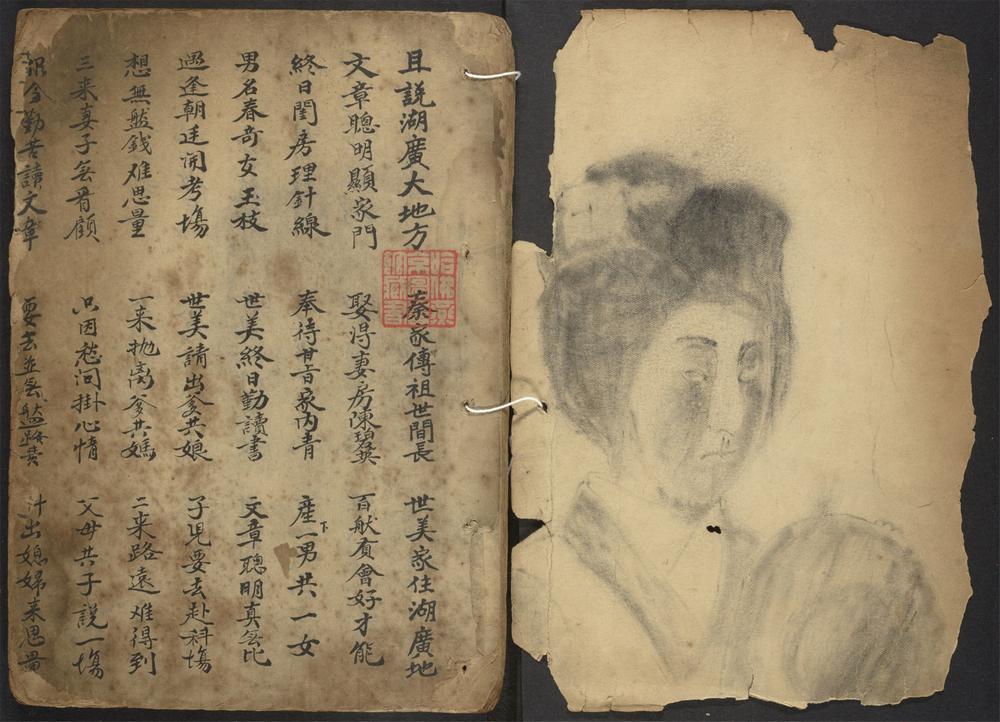 且説湖廣大地方 秦家傳祖世間長 世美家住湖廣地
文章聰明顯家門 娶得妻房陳碧英 百般會好才能
終日閨房理針線 奉待甘旨家内青 産下一男共一女
男名春奇女玉枝 世美終日勤讀書 文章聰明真無比
遇逢朝廷開考塲 世美請出爹共娘 子児要去赴科塲
想無盤錢难思量 一来抛离爹共媽 二来路遠难得到
三来妻子無看顧 只因愁问掛心情 父母共子説一塲
勤苦讀文章 要去並無盤路費 計出媳婦来思量